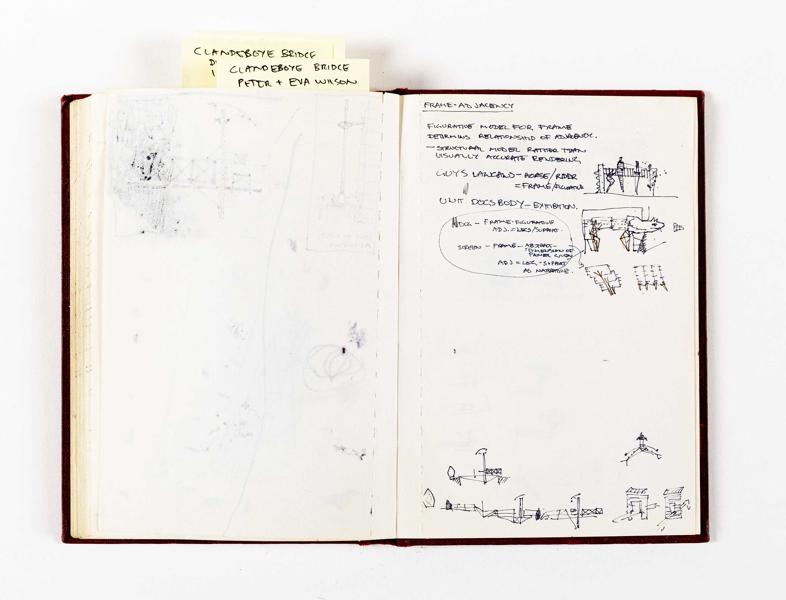 CLANDEBOYE BRIDGE
CLANDEBOYE BRIDGE
PETER + EVA WILSON
FRAME-ADJACENCY
FIGURATIVE MODEL FOR FRAME
DETERMINS RELATIONSHIP OF ADJACENCY.
- STRUCTURAL MODEL RATHER THAN
VISUALLY ACCURATE RENDERING.
GUYS - HORSE/RIDER
= FRAME/FIGURATIVE
UNIT DOGSBODY - EXHIBITION.
DOG - FRAME-FIGURATIVE
ADJ. = LEGS/SUPPORT.
SCREEN - FRAME - ABSTRACT-
DIMENSION OF
PANEL GIVEN
ADJ = LEG - SUPPORT
AS NARRATIVE.